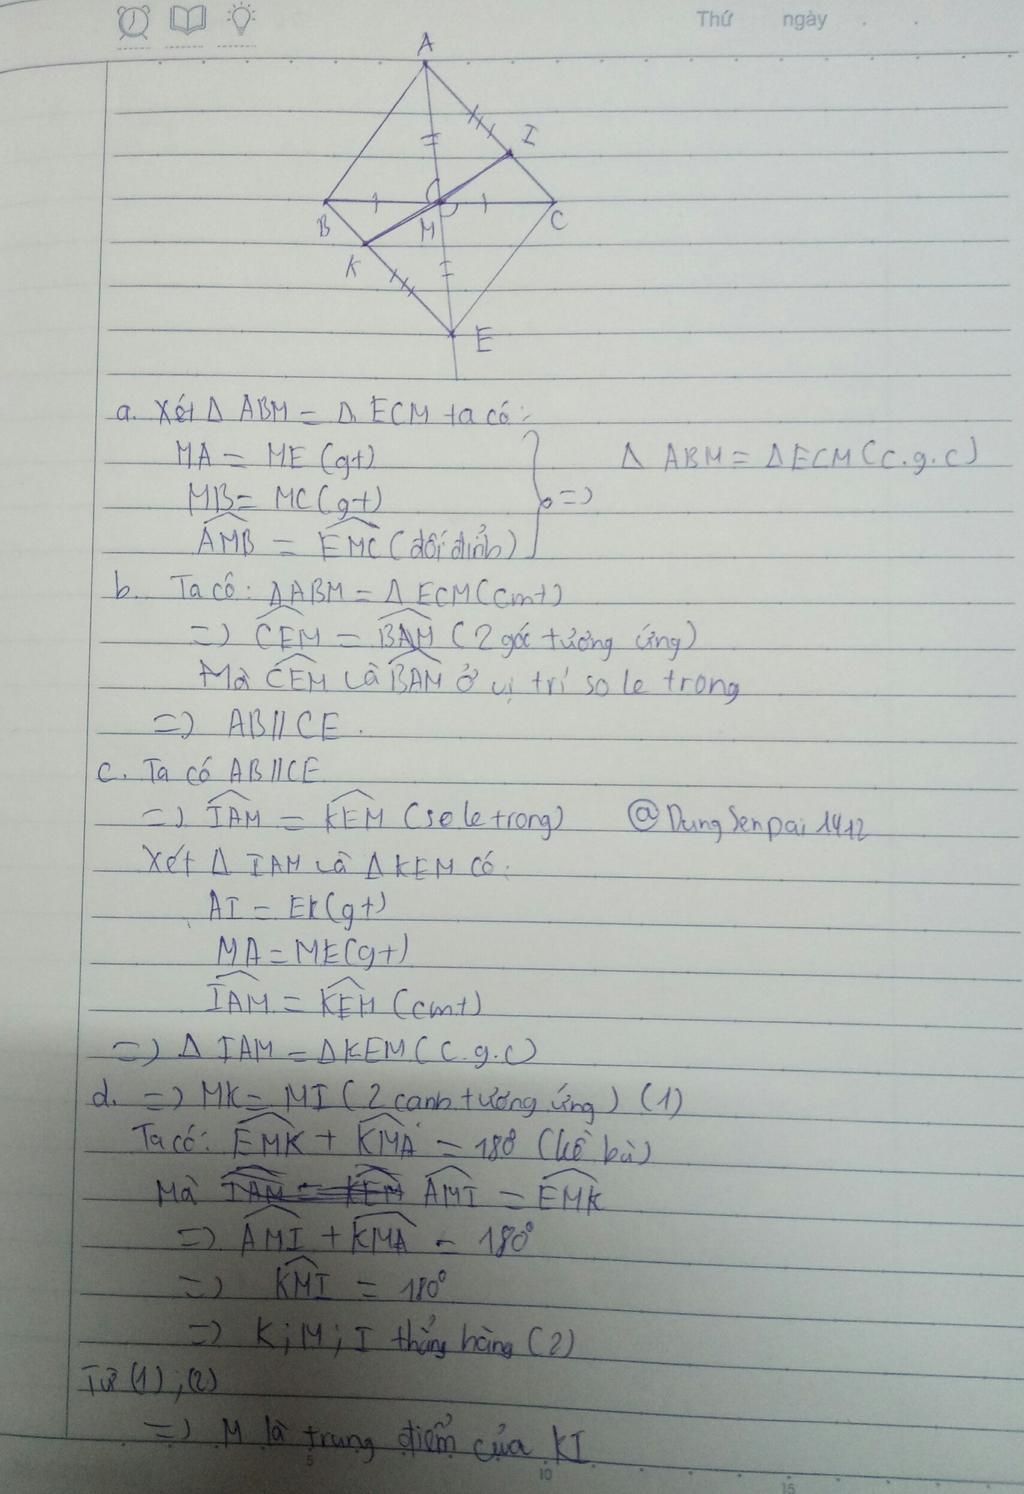 Thứ ngày . .
A
I
B M C
K
E
a. Xét Δ ABM = Δ ECM ta có:
MA = ME (gt) Δ ABM = ΔECM (c.g.c)
MB = MC (gt) =>
AMB = EMC (đối đỉnh)
b. Ta có: ΔABM = ΔECM (cmt)
=> CEM = BAM (2 góc tương ứng)
Mà CEM và BAM ở vị trí so le trong
=> AB // CE.
c. Ta có AB // CE
=> IAM = KEM (so le trong) @DungSenpai1412
Xét Δ IAM và Δ KEM có:
AI = EK (gt)
MA = ME (gt)
IAM = KEM (cmt)
=> Δ IAM = ΔKEM (c.g.c)
d. => MK = MI (2 cạnh tương ứng) (1)
Ta có: EMK + KMA = 180° (kề bù)
Mà IAM = KEM AMI = EMK
=> AMI + KMA = 180°
=> KMI = 180°
=> K; M; I thẳng hàng (2)
Từ (1); (2)
=> M là trung điểm của KI
5 10 15